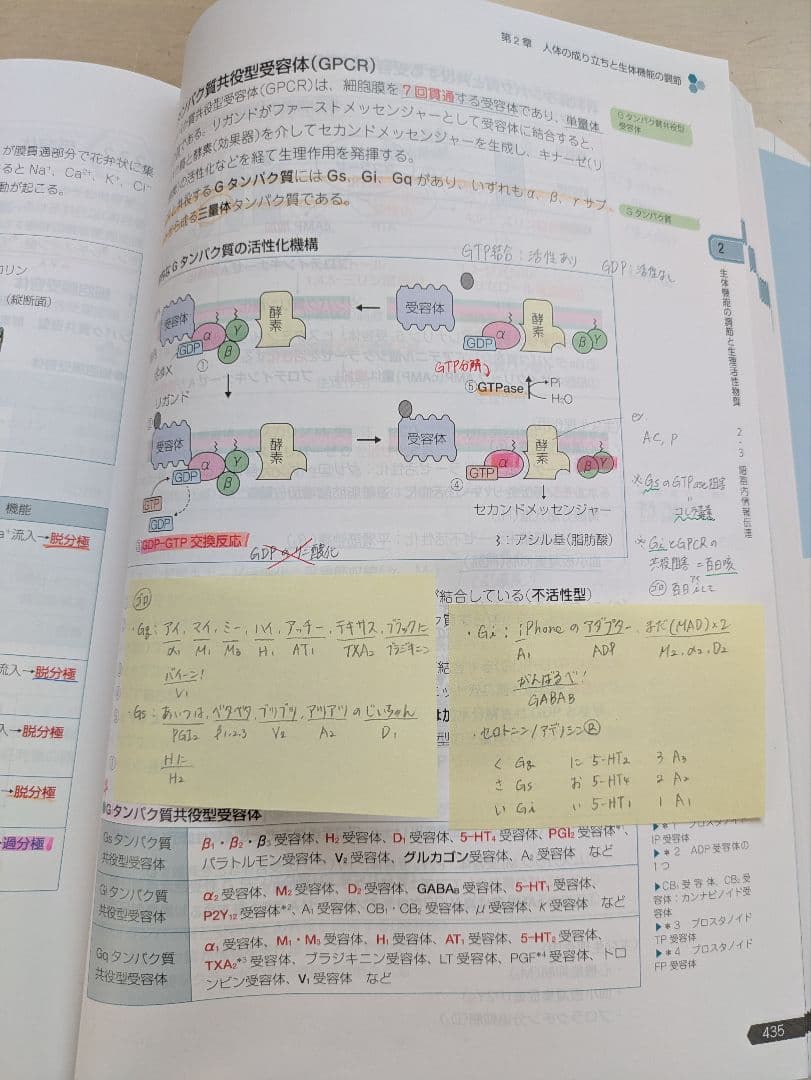 第2章 人体の成り立ちと生体機能の調節
タンパク質共役型受容体(GPCR)
質共役型受容体(GPCR)は、細胞膜を7回貫通する受容体であり、単量体
である。リガンドがファーストメッセンジャーとして受容体に結合すると、
質と酵素(効果器)を介してセカンドメッセンジャーを生成し、キナーゼ(リ
の活性化などを経て生理作用を発揮する。
共役するGタンパク質にはGs、Gi、Gqがあり、いずれもα、β、γサブ
から成る三量体タンパク質である。
Gタンパク質共役型
受容体
Gタンパク質
が膜貫通部分で花弁状に集
るとNa⁺、Ca²⁺、K⁺、Cl⁻
動が起こる。
コリン
(縦断面)
機能
流入→脱分極
流入→脱分極
入→脱分極
→脱分極
過分極
2
生体機能の調節と生理活性物質
2-3 細胞内情報伝達
Gタンパク質の活性化機構
GTP結合:活性あり GDP:活性なし
受容体
GDP
α
β
γ
酵素
①
受容体
GDP
α
酵素
β
γ
リガンド
GTP分解
⑤GTPase
Pi
H₂O
受容体
GDP
α
β
γ
酵素
GTP
GDP
受容体
α
GTP
④
酵素
β
γ
セカンドメッセンジャー
GDP-GTP交換反応
GDPのリン酸化
:アシル基(脂肪酸)
ex.
AC, P
※GsのGTPase阻害
=
コレラ毒素
※GiとGPCRの
共役阻害=百日咳
ゴロ 百日
結合している(不活性型)
ゴロ
・Gq:アイ,マイ,ミー,ハイ,アッチー,テキサス,ブラックに
α₁ M₁ M₃ H₁ AT₁ TXA₂ ブラジキニン
バイーン!
V₁
・Gs:あいつは,ベタベタ,ブリブリ,アツアツのじいちゃん
PGI₂ β1.2.3 V₂ A₂ D₁
Hに
H₂
・Gi:iPhoneのアダプター,まだ(MAD)×2
A₁ ADP M₂, α₂, D₂
がんばるべ!
GABAB
・セロトニン/アデノシンR
く Gq に 5-HT₂ 3 A₃
さ Gs お 5-HT₄ 2 A₂
い Gi い 5-HT₁ 1 A₁
Gタンパク質共役型受容体
Gsタンパク質
共役型受容体
β₁・β₂・β₃受容体、H₂受容体、D₁受容体、5-HT₄受容体、PGI₂受容体*¹、
パラトルモン受容体、V₂受容体、グルカゴン受容体、A₂受容体 など
Giタンパク質
共役型受容体
α₂受容体、M₂受容体、D₂受容体、GABA_B受容体、5-HT₁受容体、
P2Y₁₂受容体*²、A₁受容体、CB₁・CB₂受容体、μ受容体、κ受容体 など
Gqタンパク質
共役型受容体
α₁受容体、M₁・M₃受容体、H₁受容体、AT₁受容体、5-HT₂受容体、
TXA₂*³受容体、ブラジキニン受容体、LT受容体、PGF*⁴受容体、トロ
ンビン受容体、V₁受容体 など
▶*1 プロスタノイド
IP受容体
▶*2 ADP受容体の
1つ
▶CB₁受容体、CB₂受
容体:カンナビノイド受
容体
▶*3 プロスタノイド
TP受容体
▶*4 プロスタノイド
FP受容体
435